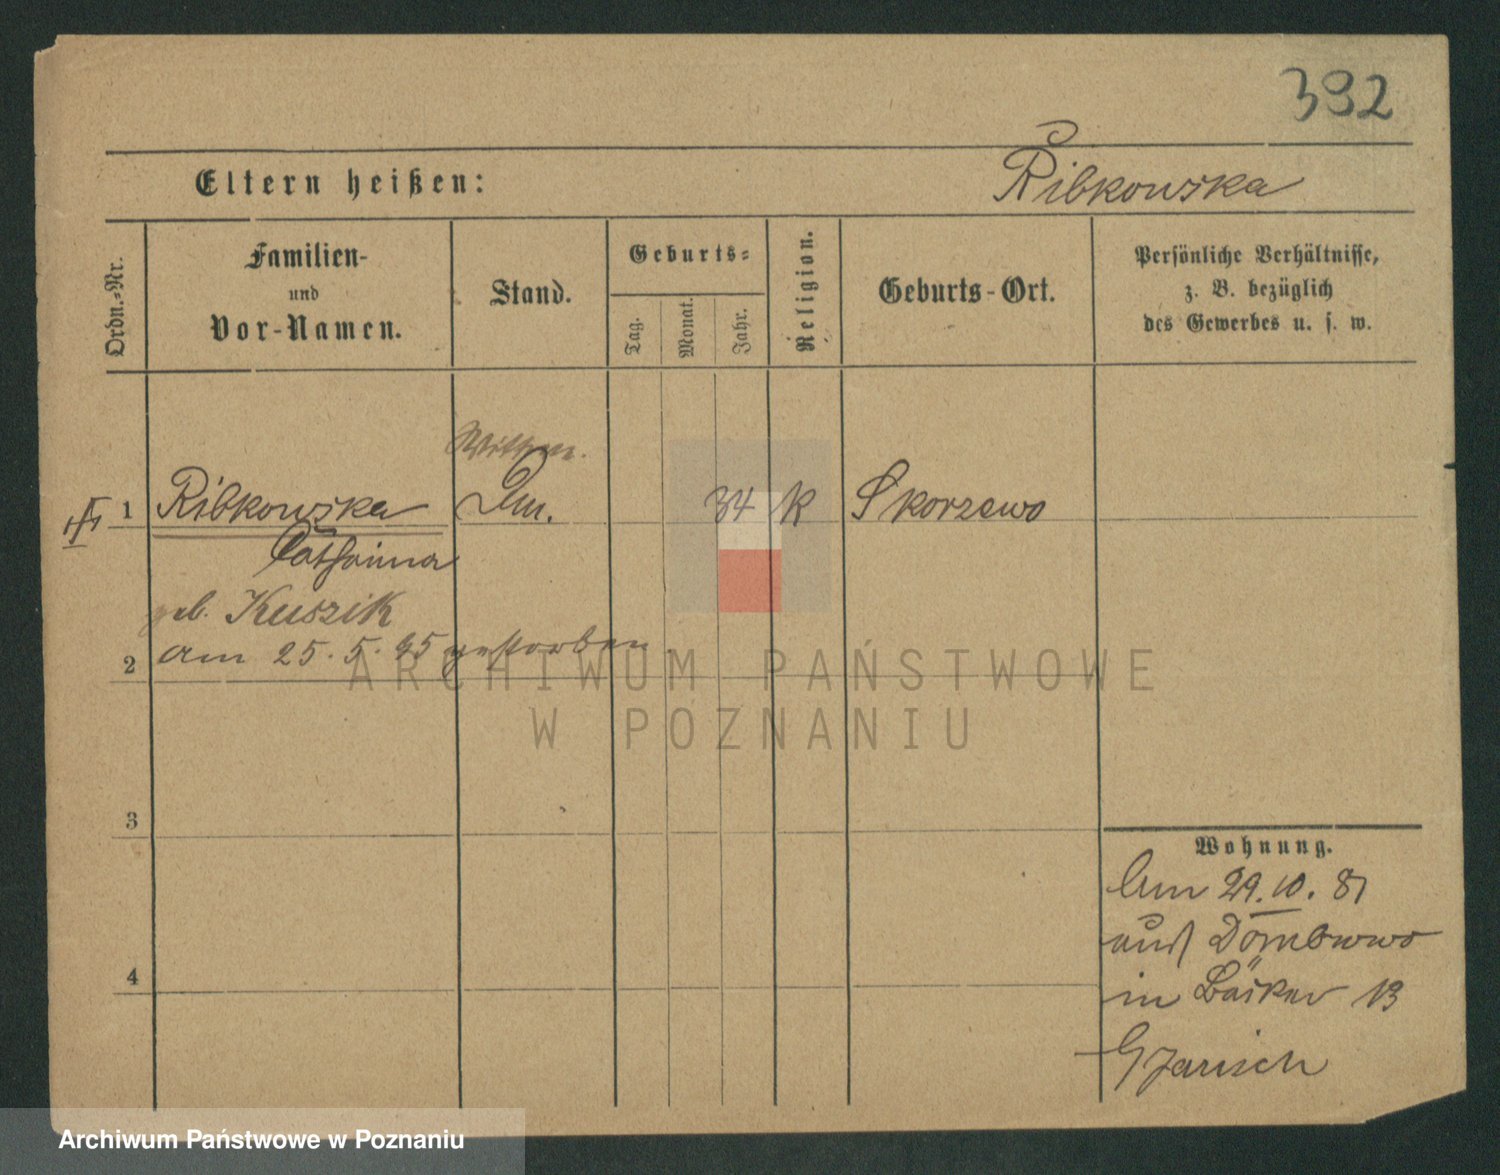 392
Eltern heißen:
Ribkowska
Ordn.-Nr.
Familien-
und
Vor-Namen.
Stand.
Geburts-
Tag.
Monat.
Jahr.
Religion.
Geburts-Ort.
Persönliche Verhältnisse,
z. B. bezüglich
des Gewerbes u. s. w.
1
Ribkowska
34
K
Skorzewo
Catharina
geb. Kuszik
2
am 25. 5. 95 gestorben
ARCHIWUM PAŃSTWOWE
W POZNANIU
3
Wohnung.
Am 29. 10. 81
4
in Bäcker 13
Archiwum Państwowe w Poznaniu